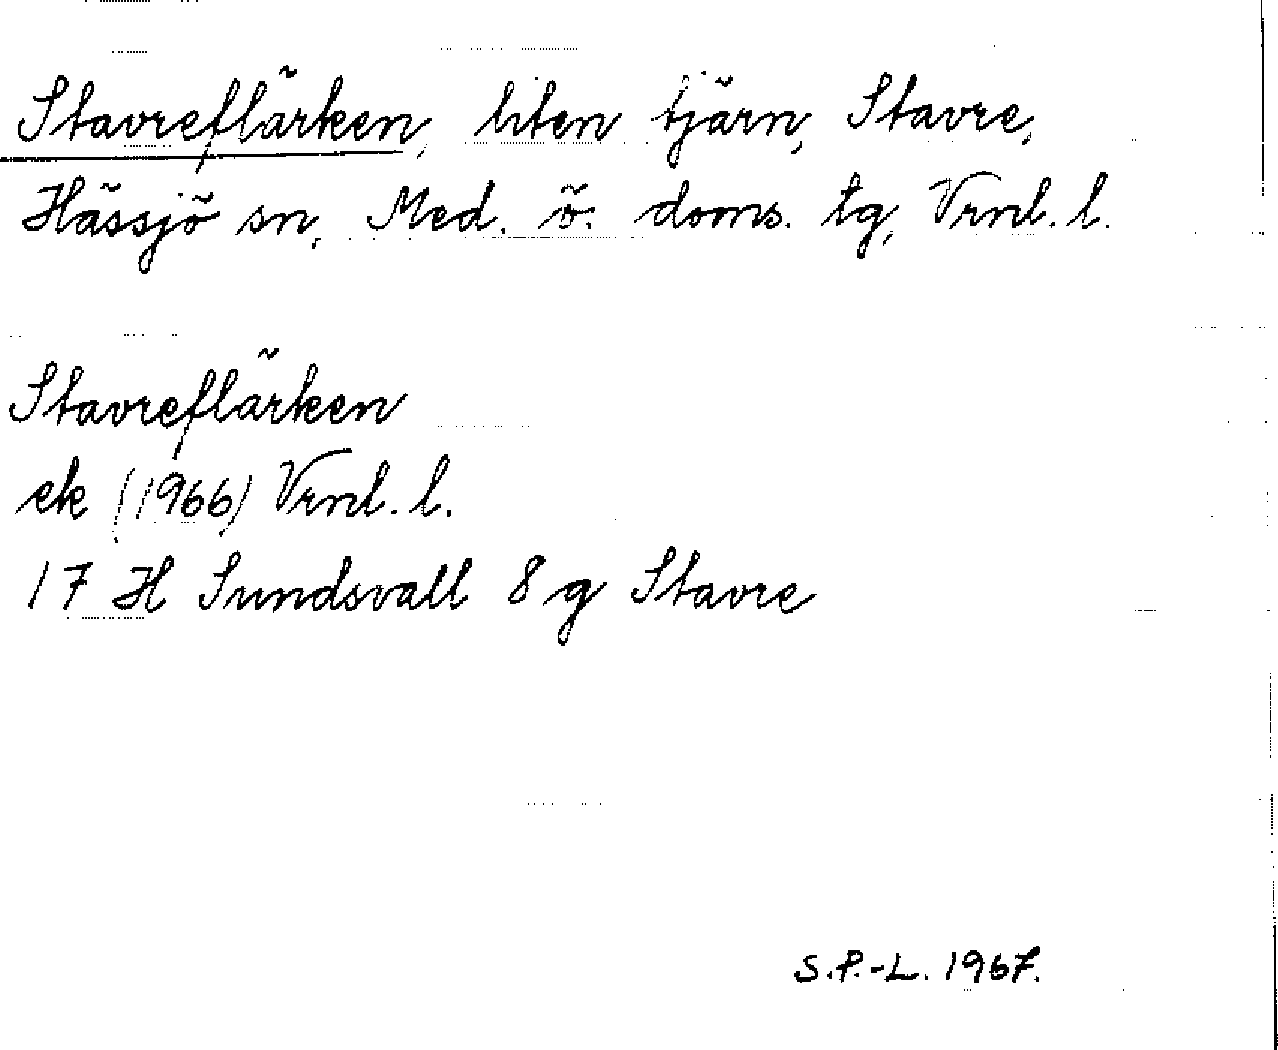 Stavreflärken, liten tjärn, Stavre,
Hässjö sn, Med. ö. doms. tg, Vrnl. l.
Stavreflärken
ek (1966) Vrnl. l.
17 H Sundsvall 8 g Stavre
S.P.-L. 1967.